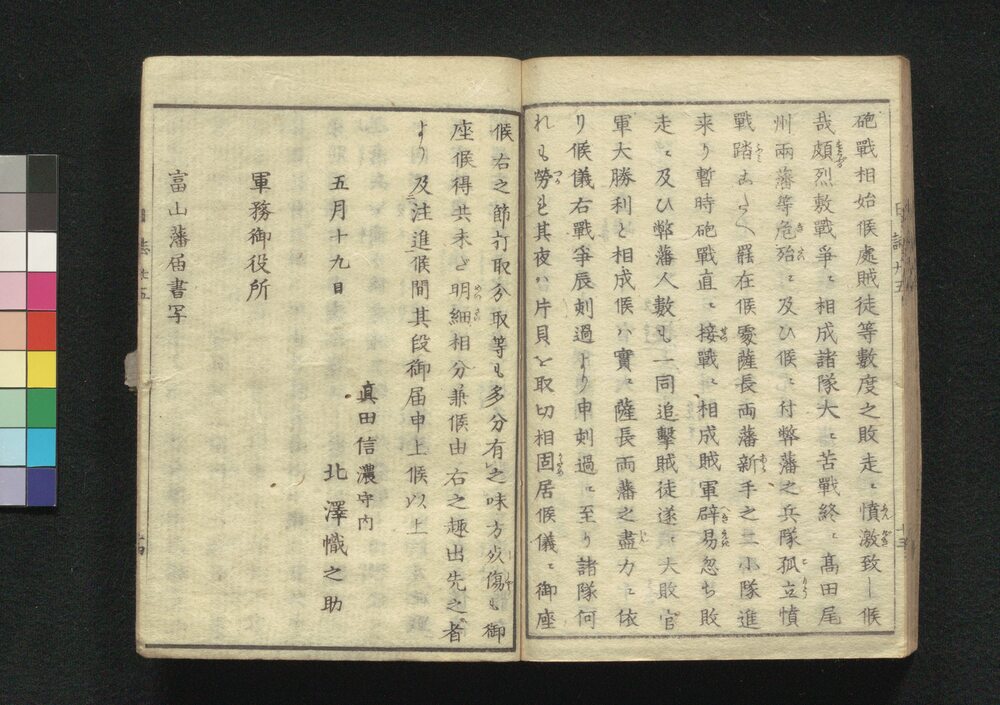 砲戰相始候處賊徒等數度之敗走ニ憤激致シ候
哉頗烈敷戰爭ニ相成諸隊大ニ苦戰終ニ髙田尾
州兩藩等危殆ニ及ひ候ニ付弊藩之兵隊孤立憤
戰踏こたへ罷在候處薩長両藩新手之二小隊進
来り暫時砲戰直ニ接戰ニ相成賊軍辟易忽ち敗
走ニ及ひ弊藩人數も一同追擊賊徒遂ニ大敗官
軍大勝利と相成候ハ實ニ薩長両藩之盡力ニ依
り候儀右戰爭辰刻過より申刻過ニ至り諸隊何
れも勞も其夜ハ片貝を取切相固居候儀ニ御座
候右之節打取分取等も多分有之味方死傷も御
座候得共未タ明細相分兼候由右之趣出先之者
より及注進候間其段御届申上候以上
五月十九日
真田信濃守内
北澤幟之助
軍務御役所
富山藩届書写